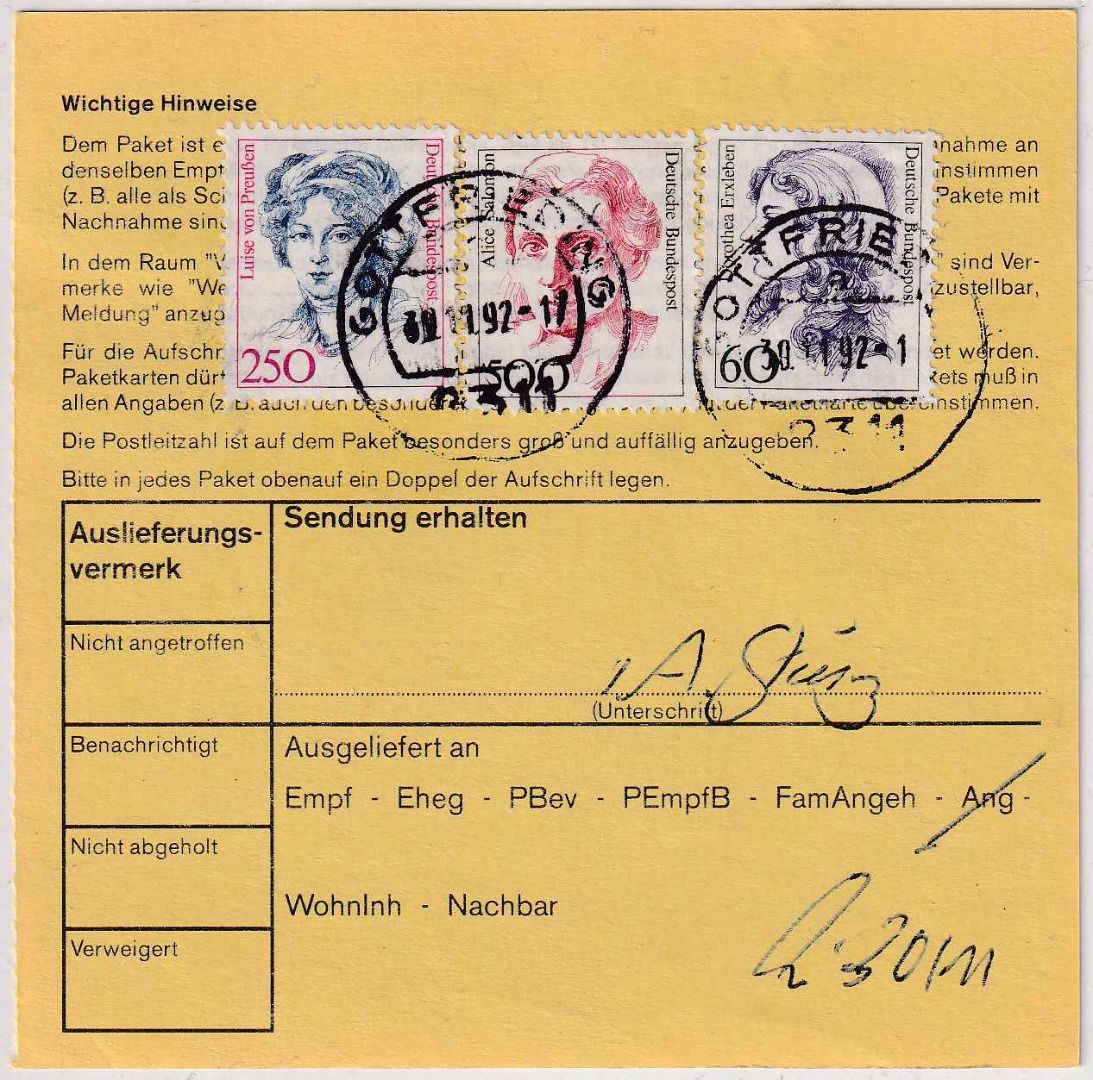 Wichtige Hinweise
Dem Paket ist e nahme an
denselben Empf instimmen
(z. B. alle als Sc Pakete mit
Nachnahme sin
In dem Raum " " sind Ver-
merke wie "We zustellbar,
Meldung" anzug
Für die Aufschr et werden.
Paketkarten dürf kets muß in
allen Angaben (z. B. auch den besondere der Paketkarte übereinstimmen.
Die Postleitzahl ist auf dem Paket besonders groß und auffällig anzugeben.
Bitte in jedes Paket obenauf ein Doppel der Aufschrift legen.
Luise von Preußen
Deutsche Bundespost
250
Alice Salomon
Deutsche Bundespost
500
Dorothea Erxleben
Deutsche Bundespost
60
30.11.92-17
2311
GOTTFRIE
30.11.92-1
2311
Auslieferungs-
vermerk
Sendung erhalten
Nicht angetroffen
(Unterschrift)
Benachrichtigt
Ausgeliefert an
Empf - Eheg - PBev - PEmpfB - FamAngeh - Ang -
Nicht abgeholt
WohnInh - Nachbar
Verweigert
30/11